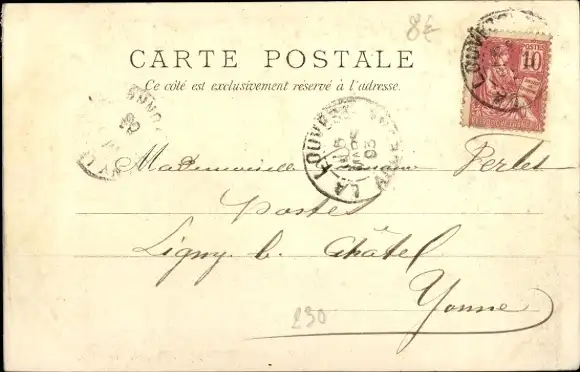 8€
CARTE POSTALE
Ce côté est exclusivement réservé à l'adresse.
POSTES
10
LA LOUVE
LA LOUVE
MARS
03
YONNE
Mademoiselle Perlet
Postes
Ligny l. Châtel
Yonne
230